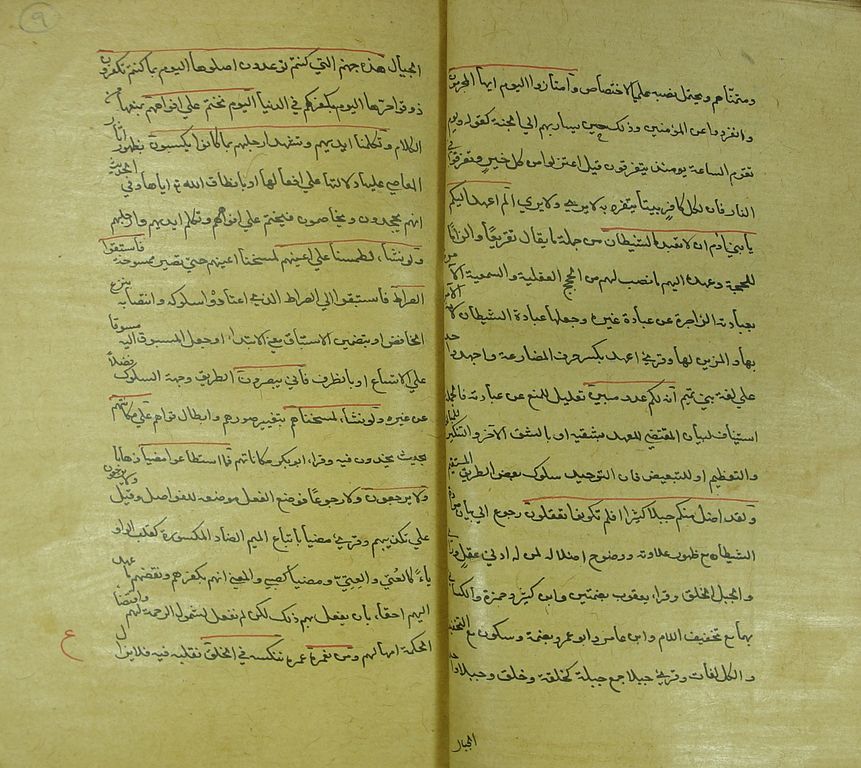 ومتمناهم ويحتمل نصبه علي الاختصاص وامتازوا اليوم ايها المجرمون
وانفردوا عن المؤمنين وذلك حين يسار بهم الي الجنة كقوله ويوم
تقوم الساعة يومئذ يتفرقون قيل اعتزلوا من كل خير وتفرقوا في
النار فان لكل كافر بيتا يتفرد به لا يري ولا يري الم اعهد اليكم
يا بني آدم ان لا تعبدوا الشيطان من جملة ما يقال تقريعا والزاما
للحجة وعهده اليهم ما نصب لهم من الحجج العقلية والسمعية الآمرة
بعبادته الزاجرة عن عبادة غيره وجعلها عبادة الشيطان لانه الآمر
بها والمزين لها وقرئ اعهد بكسر حرف المضارعة واحهد
علي لغة بني تميم انه لكم عدو مبين تعليل للمنع عن عبادته
استيناف لبيان المقتضي للعهد بشقيه او بالشق الآخر والتنكير
والتعظيم او للتبعيض فان التوحيد سلوك بعض الطريق المستقيم
ولقد اضل منكم جبلا كثيرا افلم تكونوا تعقلون رجوع الي بيان
الشيطان مع ظهور عداوته ووضوح اضلاله لمن له ادني عقل وراي
والجبل الخلق وقرا يعقوب بضمتين وابن كثير وحمزة والكسائي
بهما مع تخفيف اللام وابن عامر وابو عمرو بضمة وسكون مع التخفيف
والكل لغات وقرئ جبلا جمع جبلة كخلقة وخلق وجيلا واحد
الجيال
٩
الجيال هذه جهنم التي كنتم توعدون اصلوها اليوم بما كنتم تكفرون
ذوقوا حرها اليوم بكفركم في الدنيا اليوم نختم علي افواههم نمنعها عن
الكلام وتكلمنا ايديهم وتشهد ارجلهم بما كانوا يكسبون بظهور آثار
المعاصي عليها ودلالتها علي افعالها او بانطاق الله تع اياها وفي الحديث
انهم يجحدون ويخاصمون فيختم علي افواههم وتكلم ايديهم وارجلهم
ولو نشاء لطمسنا علي اعينهم لمسحنا اعينهم حتي تصير ممسوحة فاستبقوا
الصراط فاستبقوا الي الصراط الذي اعتادوا سلوكه وانتصابه بنزع
الخافض او بتضمين الاستباق معني الابتدار او جعل المسبوق اليه مسبوقا
علي الاتساع او بالظرف فاني يبصرون الطريق وجهة السلوك فضلا
عن غيره ولو نشاء لمسخناهم بتغيير صورهم وابطال قواهم علي مكانتهم
بحيث يخمدون فيه وقرا ابو بكر مكاناتهم فما استطاعوا مضيا ذهابا
ولا يرجعون ولا رجوعا فوضع الفعل موضعه للفواصل وقيل ولا يرجعون
علي تكذيبهم وقرئ مضيا باتباع الميم الضاد المكسورة كقلب الواو
ياء كالعتي والعتي ومضيا كصبي والمعني انهم بكفرهم ونقضهم ما عهد
اليهم احقاء بان يفعل بهم ذلك لكن لم نفعل لشمول الرحمة لهم واقتضاء
الحكمة امهالهم ومن نعمره عمره ننكسه في الخلق نقلبه فيه فلا يزال
ع